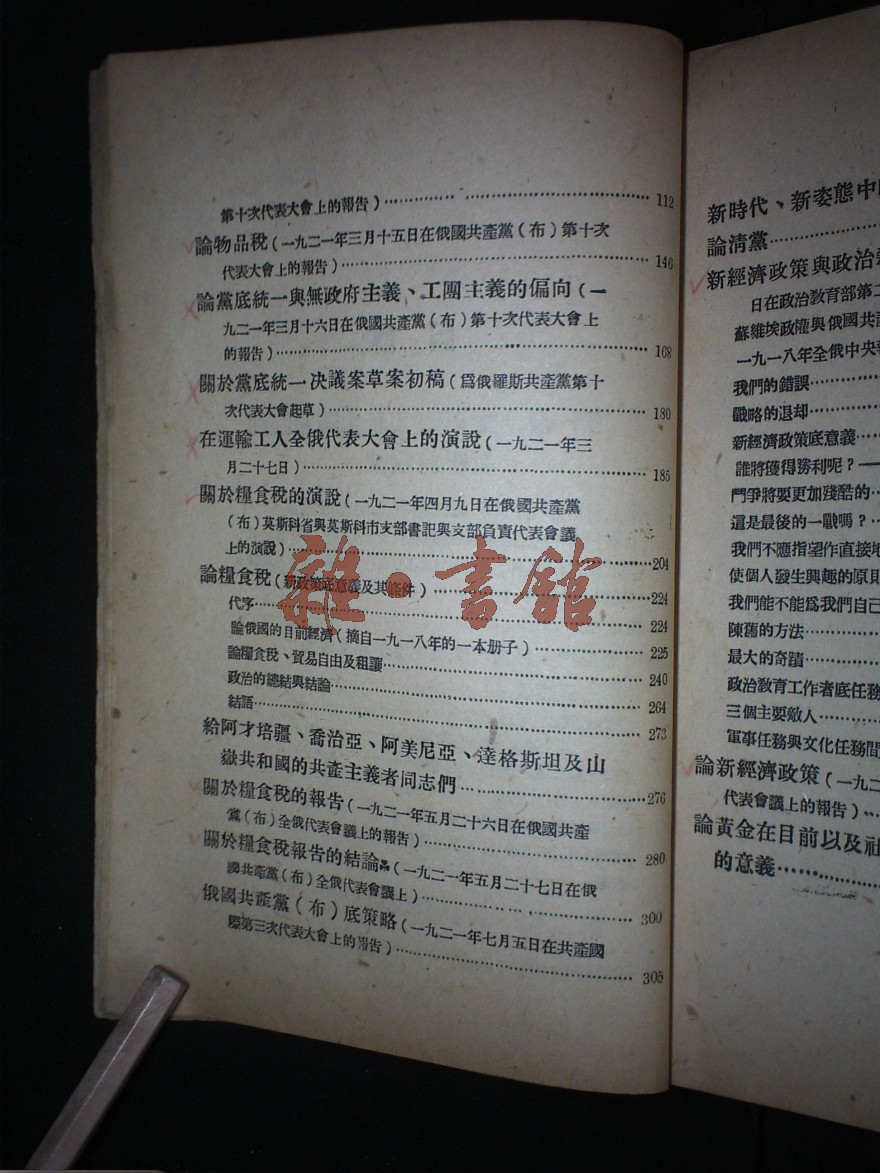 第十次代表大會上的報告)……………………112
論物品稅(一九二一年三月十五日在俄國共產黨(布)第十次
代表大會上的報告)……………………146
論黨底統一與無政府主義、工團主義的偏向(一
九二一年三月十六日在俄國共產黨(布)第十次代表大會上
的報告)……………………168
關於黨底統一決議案草案初稿(爲俄羅斯共產黨第十
次代表大會起草)……………………180
在運輸工人全俄代表大會上的演說(一九二一年三
月二十七日)……………………185
關於糧食稅的演說(一九二一年四月九日在俄國共產黨
(布)莫斯科省與莫斯科市支部書記與支部負責代表會議
上的演說)……………………204
論糧食稅(新政策底意義及其條件)……………………224
代序……………………224
論俄國的目前經濟(摘自一九一八年的一本册子)……………………225
論糧食稅、貿易自由及租讓……………………240
政治的總結與結論……………………264
結語……………………273
給阿才培疆、喬治亞、阿美尼亞、達格斯坦及山
嶽共和國的共產主義者同志們……………………276
關於糧食稅的報告(一九二一年五月二十六日在俄國共產
黨(布)全俄代表會議上的報告)……………………280
關於糧食稅報告的結論(一九二一年五月二十七日在俄
國共產黨(布)全俄代表會議上)……………………300
俄國共產黨(布)底策略(一九二一年七月五日在共產國
際第三次代表大會上的報告)……………………305
雜·書館
新時代、新姿態中
論清黨……………………
新經濟政策與政治
日在政治教育部第二
蘇維埃政權與俄國共產
一九一八年全俄中央
我們的錯誤……………………
戰略的退却……………………
新經濟政策底意義……………………
誰將獲得勝利呢?——
鬥爭將要更加殘酷的…
這是最後的一戰嗎?…
我們不應指望作直接地
使個人發生興趣的原則
我們能不能爲我們自己
陳舊的方法……………………
最大的奇蹟……………………
政治教育工作者底任務
三個主要敵人……………………
軍事任務與文化任務間
論新經濟政策(一九二
代表會議上的報告)…
論黃金在目前以及社
的意義……………………